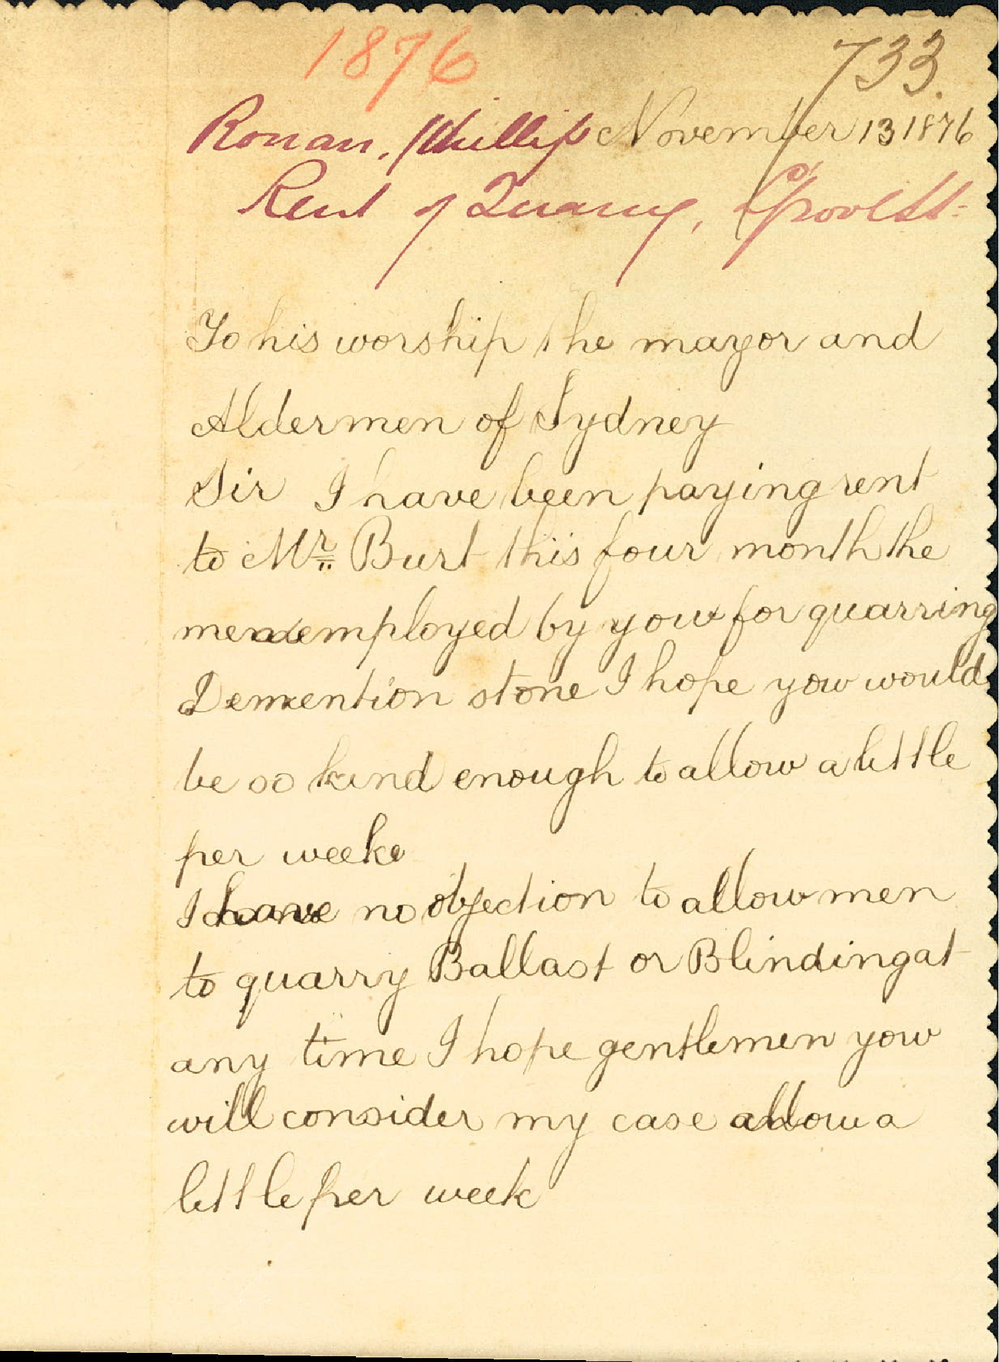 1876
733.
Ronan, Phillip November 13 1876
Rent of Quarry, Grove St.
To his worship the mayor and
Aldermen of Sydney
Sir I have been paying rent
to Mr. Burt this four month the
men employed by yow for quarring
Demention stone I hope yow would
be so kind enough to allow a little
per weeke
I have no objection to allow men
to quarry Ballast or Blinding at
any time I hope gentlemen yow
will consider my case allow a
little per week